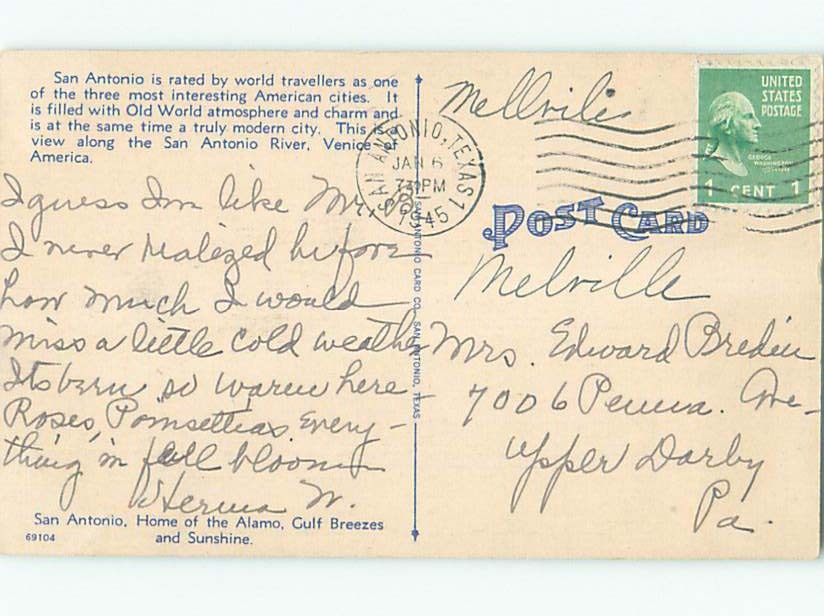 San Antonio is rated by world travellers as one
of the three most interesting American cities. It
is filled with Old World atmosphere and charm and
is at the same time a truly modern city. This is a
view along the San Antonio River, Venice of
America.
I guess Im like Mr.
I never realized before
how much I would
miss a little cold weather
Its been so warm here -
Roses, Poinsettias, Every-
thing in full bloom
Herma W.
San Antonio, Home of the Alamo, Gulf Breezes
and Sunshine.
69104
SAN ANTONIO CARD CO. SAN ANTONIO, TEXAS
SAN ANTONIO, TEXAS 1
JAN 6
730PM
1945
UNITED
STATES
POSTAGE
GEORGE
WASHINGTON
1 CENT 1
POST CARD
Mellvile
Melville
Mrs. Edward Bredin
7006 Penna. Ave-
Upper Darby
Pa.